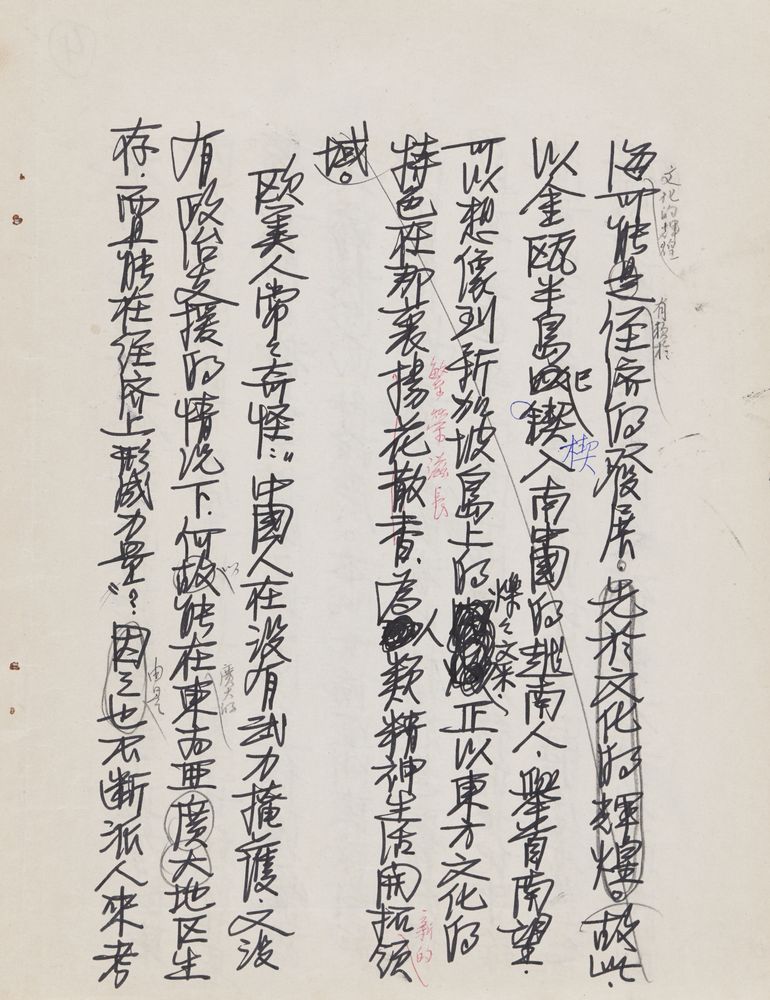 海可能是經濟的發展。先於文化的輝煌。故此
文化的輝煌
有賴於
以金甌半島已鍥入南中國的越南人,舉首南望,
楔
可以想像到新加坡島上的 正以東方文化的
爍爍文采,
特色在那裏揚花散香,為人類精神生活開拓領
繁榮滋長
新的
域。
歐美人常常奇怪:“中國人在沒有武力掩護,又沒
有政治支援的情況下,何故能在東南亞廣大地区生
廣大的
存,而且能在经济上形成力量”?因之也不斷派人來考
由是